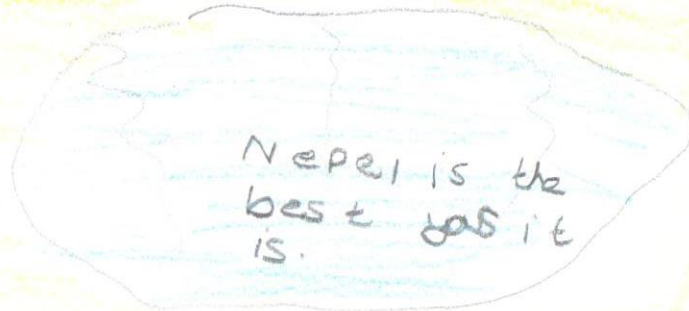 Nepel is the
best yas it
is.